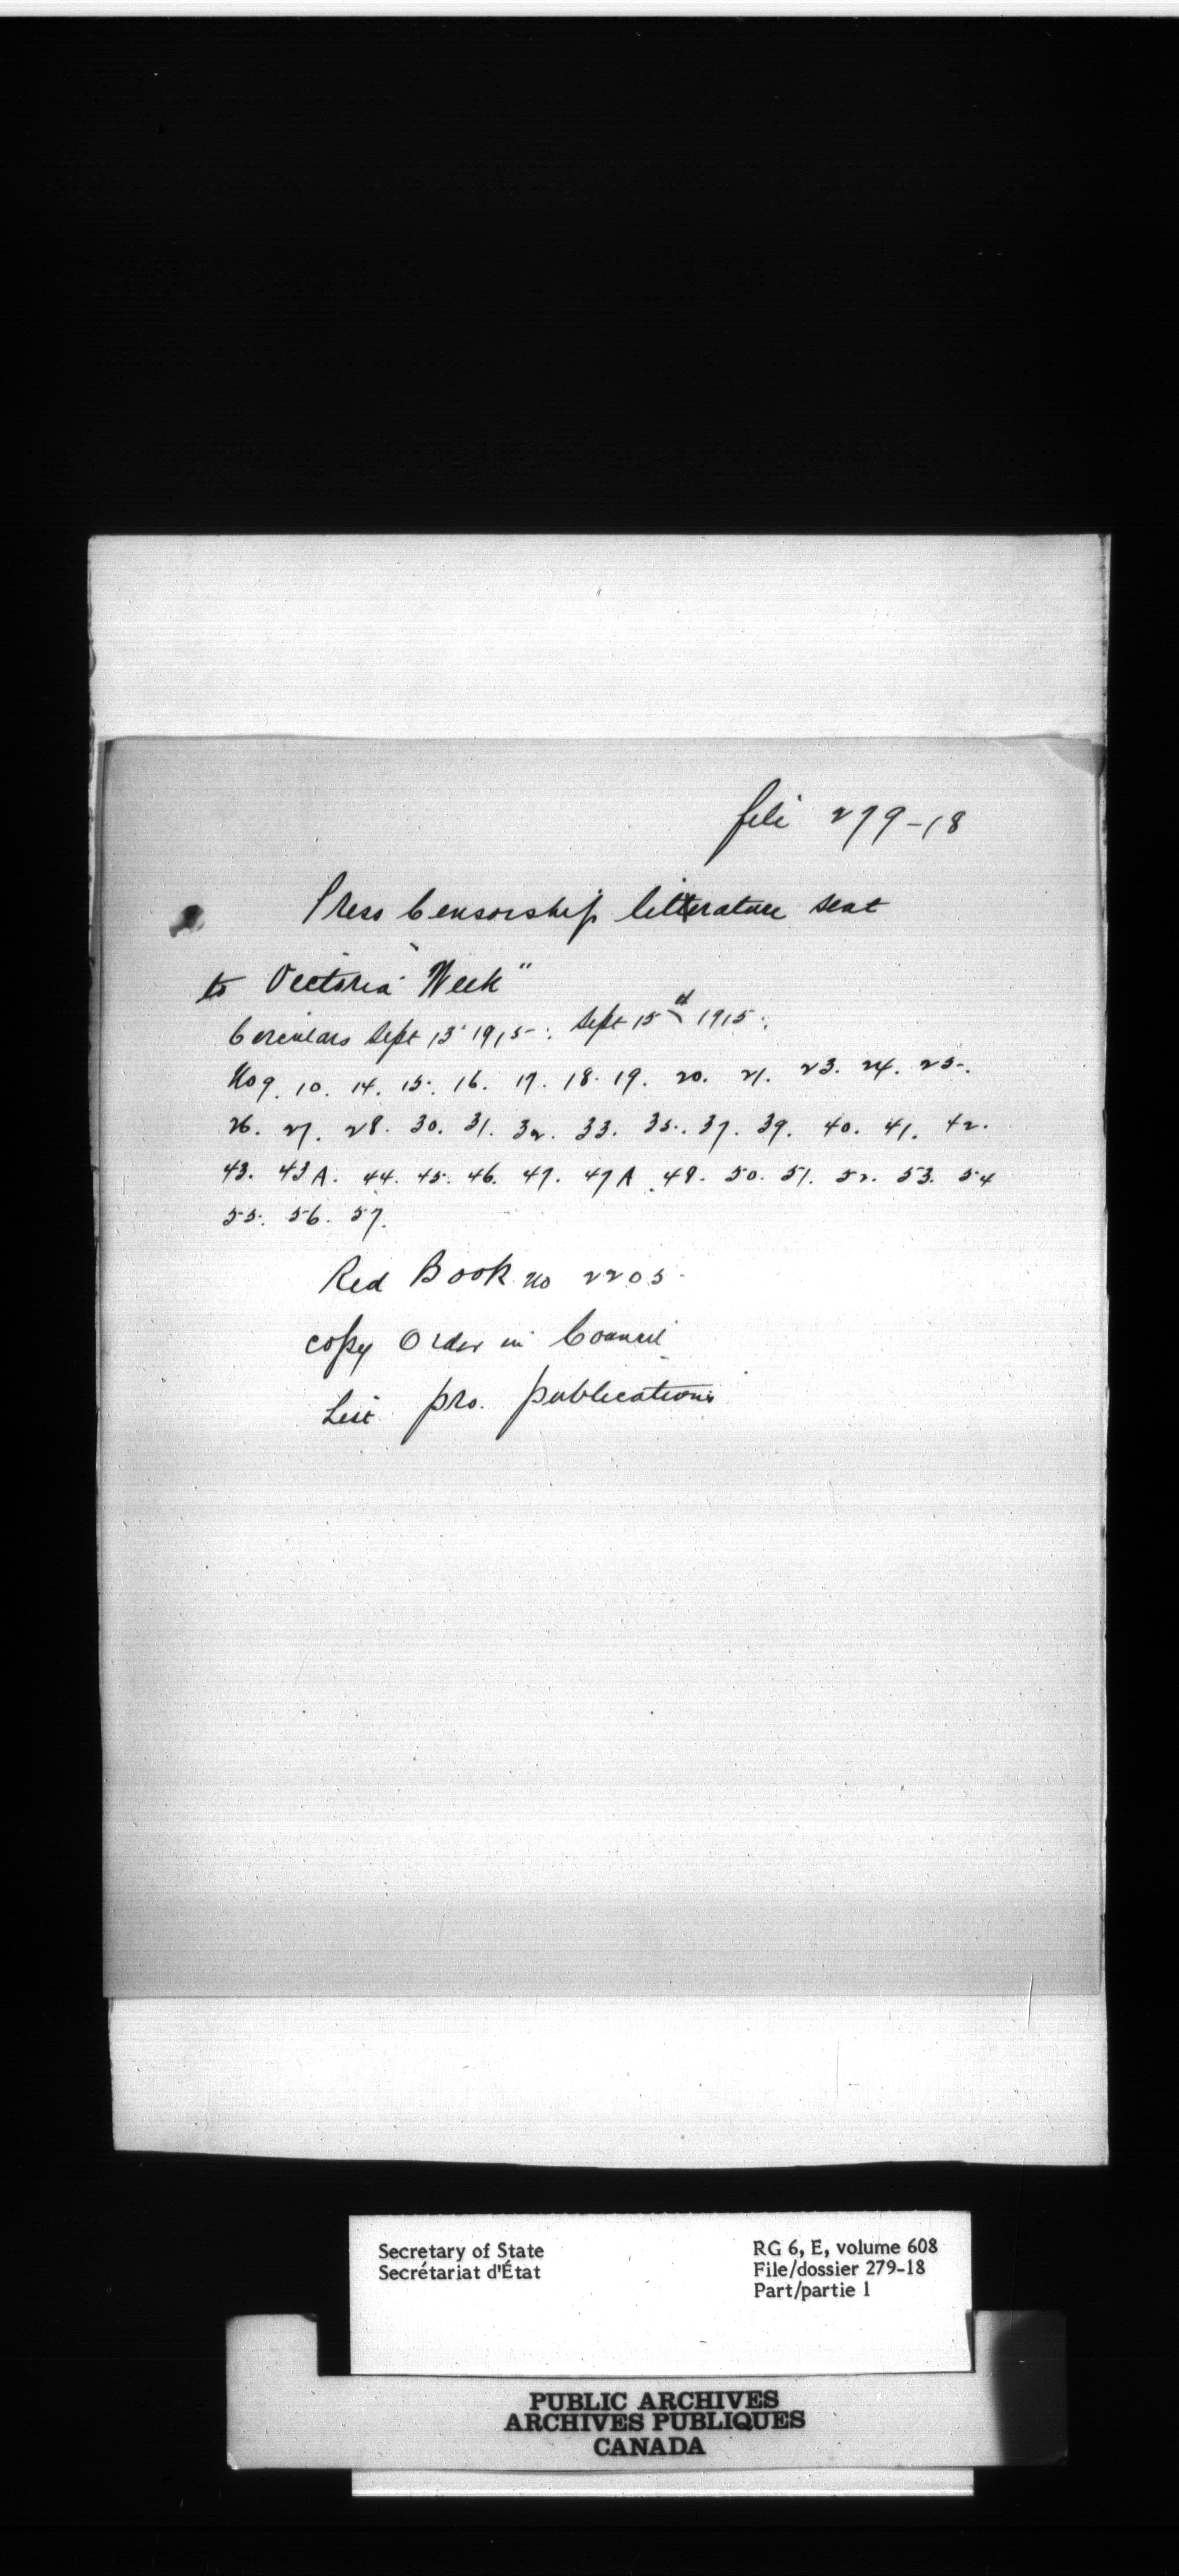 file 279-18
Press Censorship litterature sent
to Victoria "Week"
Circulars Sept 13 1915. Sept 15th 1915.
No 9. 10. 14. 15. 16. 17. 18. 19. 20. 21. 23. 24. 25.
26. 27. 28. 30. 31. 32. 33. 35. 37. 39. 40. 41. 42.
43. 43A. 44. 45. 46. 47. 47A. 49. 50. 51. 52. 53. 54
55. 56. 57.
Red Book no 2205.
copy Order in Council
List pro. publications
Secretary of State
Secrétariat d'État
RG 6, E, volume 608
File/dossier 279-18
Part/partie 1
PUBLIC ARCHIVES
ARCHIVES PUBLIQUES
CANADA